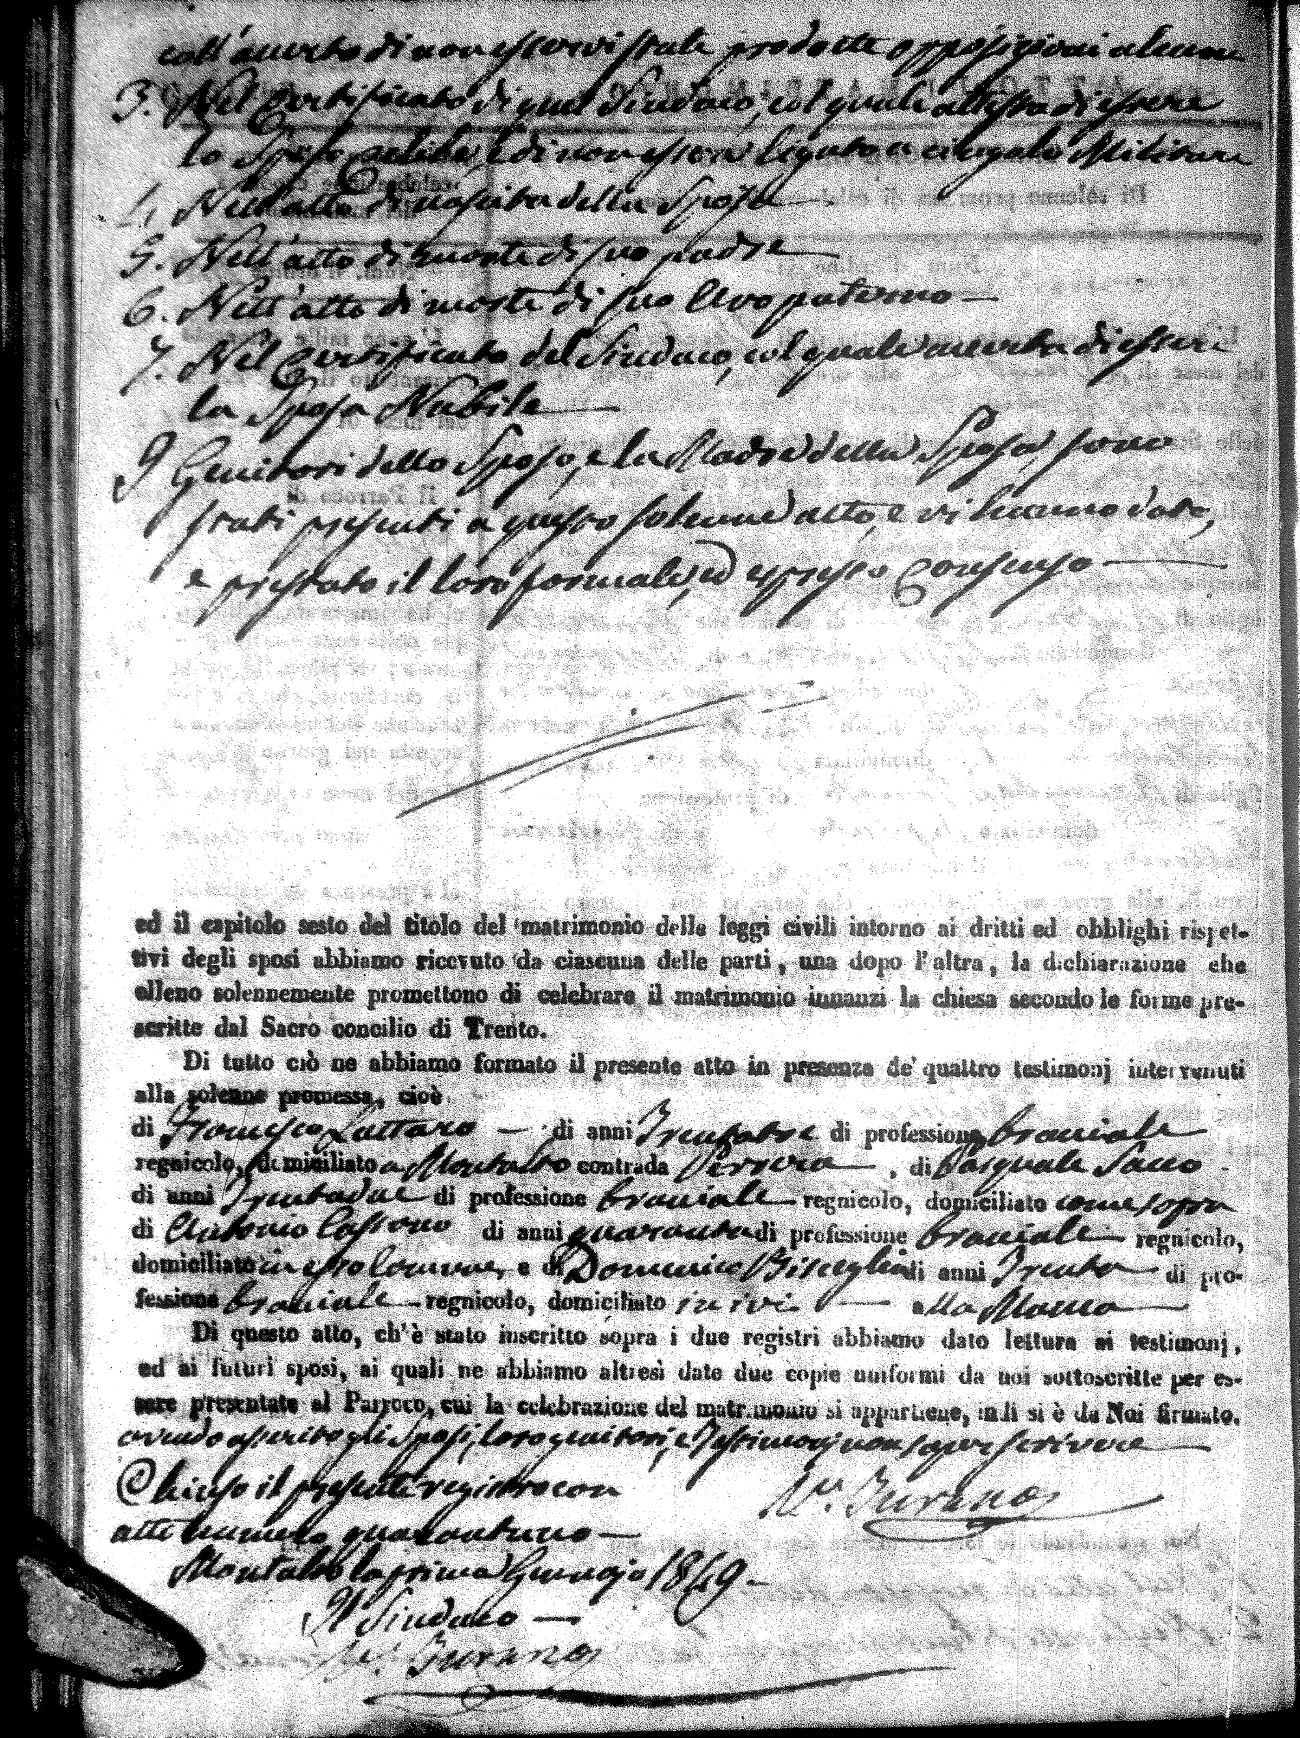 coll'averto di non esservi state prodotte opposizioni alcune
3. Nel Certificato di quel Sindaco, col quale attesta di essere
lo Sposo celibe, e di non essere legato a cingolo Militare
4. Nell'atto di nascita della Sposa
5. Nell'atto di morte di suo padre
6. Nell'atto di morte di suo Avo paterno
7. Nel Certificato del Sindaco, col quale averta di essere
la Sposa Nubile
I Genitori dello Sposo, e la Madre della Sposa, sono
stati presenti a questo solenne atto, e vi hanno dato,
e prestato il loro formale, ed espresso Consenso
ed il capitolo sesto del titolo del matrimonio delle leggi civili intorno ai dritti ed obblighi rispet-
tivi degli sposi abbiamo ricevuto da ciascuna delle parti, una dopo l'altra, la dichiarazione che
elleno solennemente promettono di celebrare il matrimonio innanzi la chiesa secondo le forme pre-
scritte dal Sacro concilio di Trento.
Di tutto ciò ne abbiamo formato il presente atto in presenza de' quattro testimonj intervenuti
alla solenne promessa, cioè
di Francesco Lattaro di anni Trentatre di professione braciale
regnicolo, domiciliato a Montalto contrada , di Pasquale Sacco
di anni Trentadue di professione braciale regnicolo, domiciliato come sopra
di Antonio Cassano di anni quaranta di professione braciale regnicolo,
domiciliato in esso Comune, e di Domenico Bisceglia di anni Trenta di pro-
fessione braciale regnicolo, domiciliato in ivi alla
Di questo atto, ch'è stato inscritto sopra i due registri abbiamo dato lettura ai testimonj,
ed ai futuri sposi, ai quali ne abbiamo altresì date due copie uniformi da noi sottoscritte per es-
sere presentate al Parroco, cui la celebrazione del matrimonio si appartiene, indi si è da Noi firmato.
avendo asserito gli Sposi, loro genitori, e Testimonj non saper scrivere
Chiuso il presente registro con
atti numero quarantuno
Montalto la prima Gennajo 1849
Il Sindaco